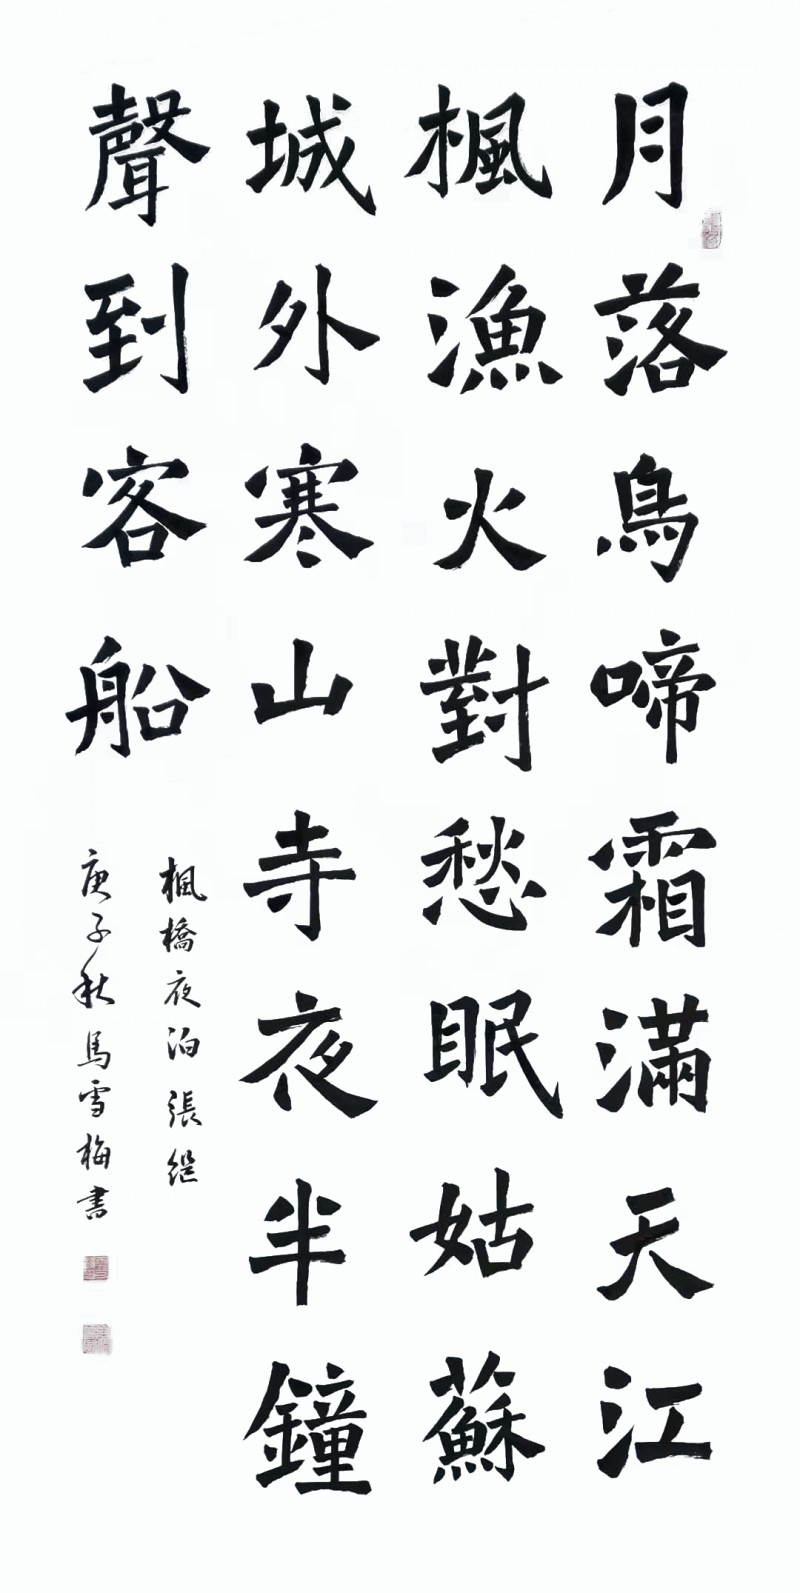 月落鳥啼霜滿天江
楓漁火對愁眠姑蘇
城外寒山寺夜半鐘
聲到客船
楓橋夜泊張継
庚子秋馬雪梅書